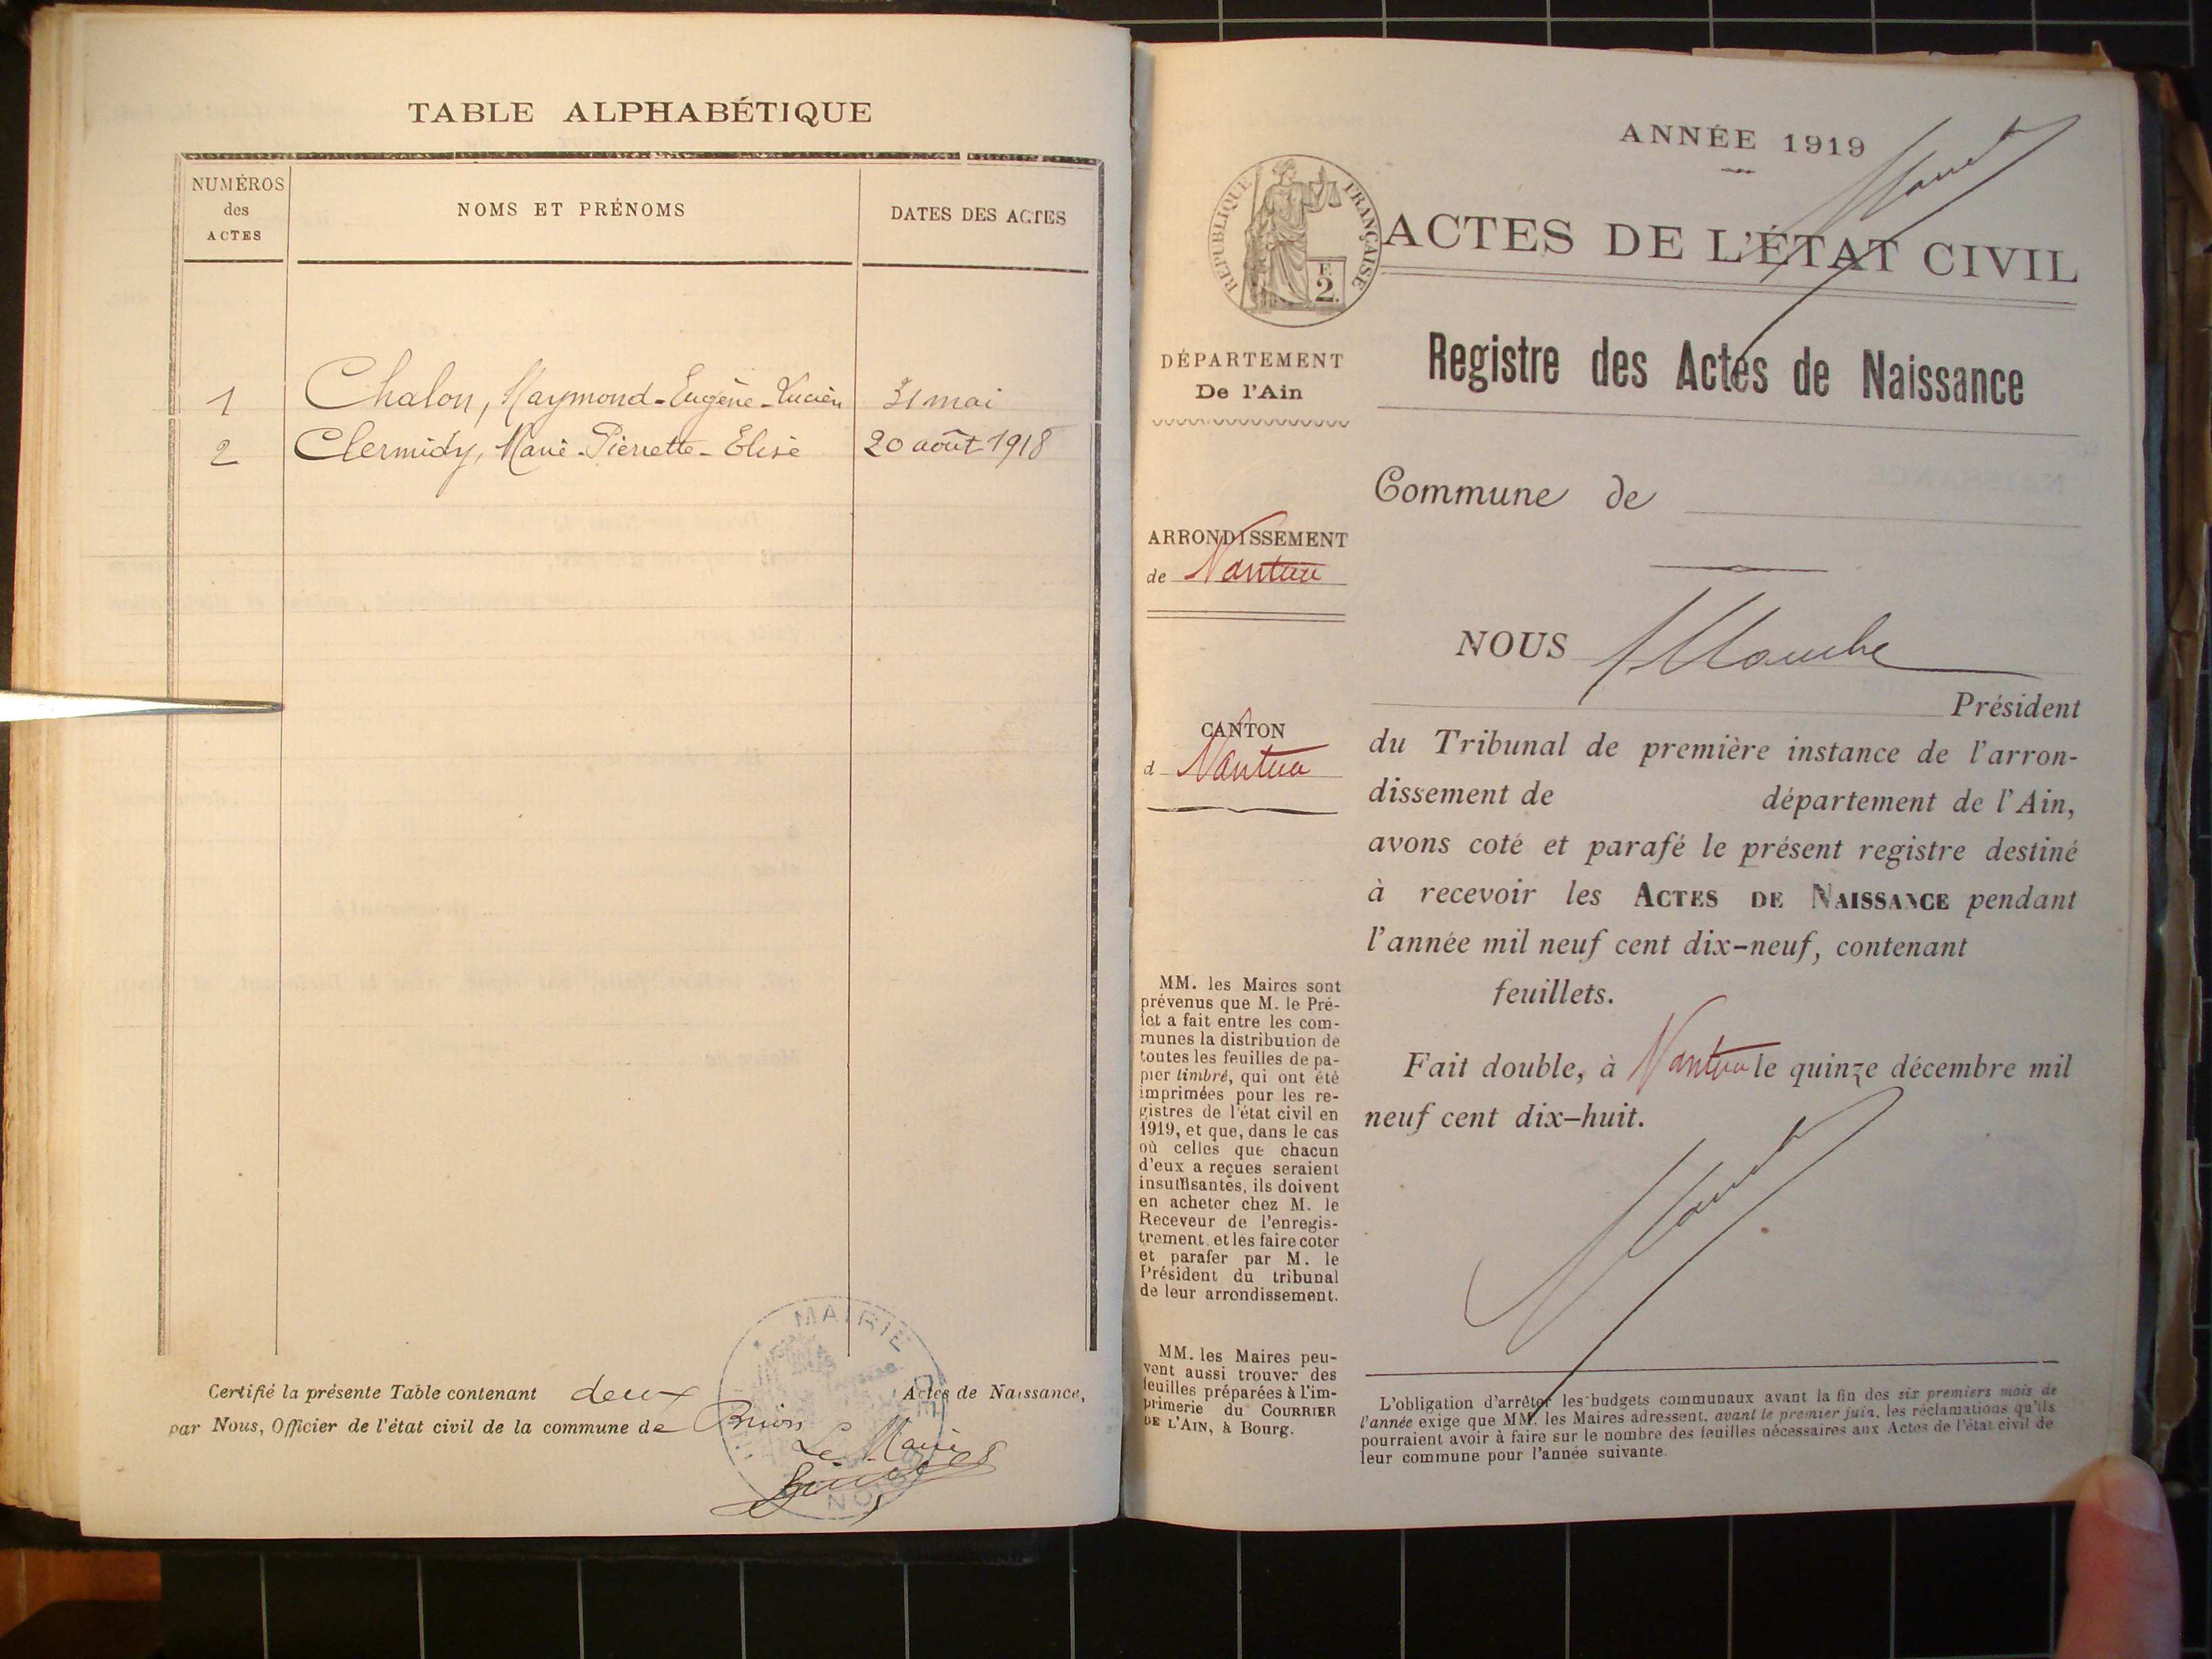 TABLE ALPHABÉTIQUE
NUMÉROS
des
ACTES
NOMS ET PRÉNOMS
DATES DES ACTES
1 Chalon, Raymond-Eugène-Lucien 31 mai
2 Clermidy, Marie-Pierrette-Elise 20 août 1918
Certifié la présente Table contenant deux Actes de Naissance,
par Nous, Officier de l'état civil de la commune de Brion
Le Maire
MAIRIE
ANNÉE 1919
RÉPUBLIQUE FRANÇAISE
2
ACTES DE L'ÉTAT CIVIL
DÉPARTEMENT
De l'Ain
ARRONDISSEMENT
de Nantua
CANTON
d Nantua
MM. les Maires sont
prévenus que M. le Pré-
fet a fait entre les com-
munes la distribution de
toutes les feuilles de pa-
pier timbré, qui ont été
imprimées pour les re-
gistres de l'état civil en
1919, et que, dans le cas
où celles que chacun
d'eux a reçues seraient
insuffisantes, ils doivent
en acheter chez M. le
Receveur de l'enregis-
trement, et les faire coter
et parafer par M. le
Président du tribunal
de leur arrondissement.
MM. les Maires peu-
vent aussi trouver des
feuilles préparées à l'im-
primerie du COURRIER
DE L'AIN, à Bourg.
Registre des Actes de Naissance
Commune de
NOUS
Président
du Tribunal de première instance de l'arron-
dissement de département de l'Ain,
avons coté et parafé le présent registre destiné
à recevoir les ACTES DE NAISSANCE pendant
l'année mil neuf cent dix-neuf, contenant
feuillets.
Fait double, à Nantua le quinze décembre mil
neuf cent dix-huit.
L'obligation d'arrêter les budgets communaux avant la fin des six premiers mois de
l'année exige que MM. les Maires adressent, avant le premier juin, les réclamations qu'ils
pourraient avoir à faire sur le nombre des feuilles nécessaires aux Actes de l'état civil de
leur commune pour l'année suivante.